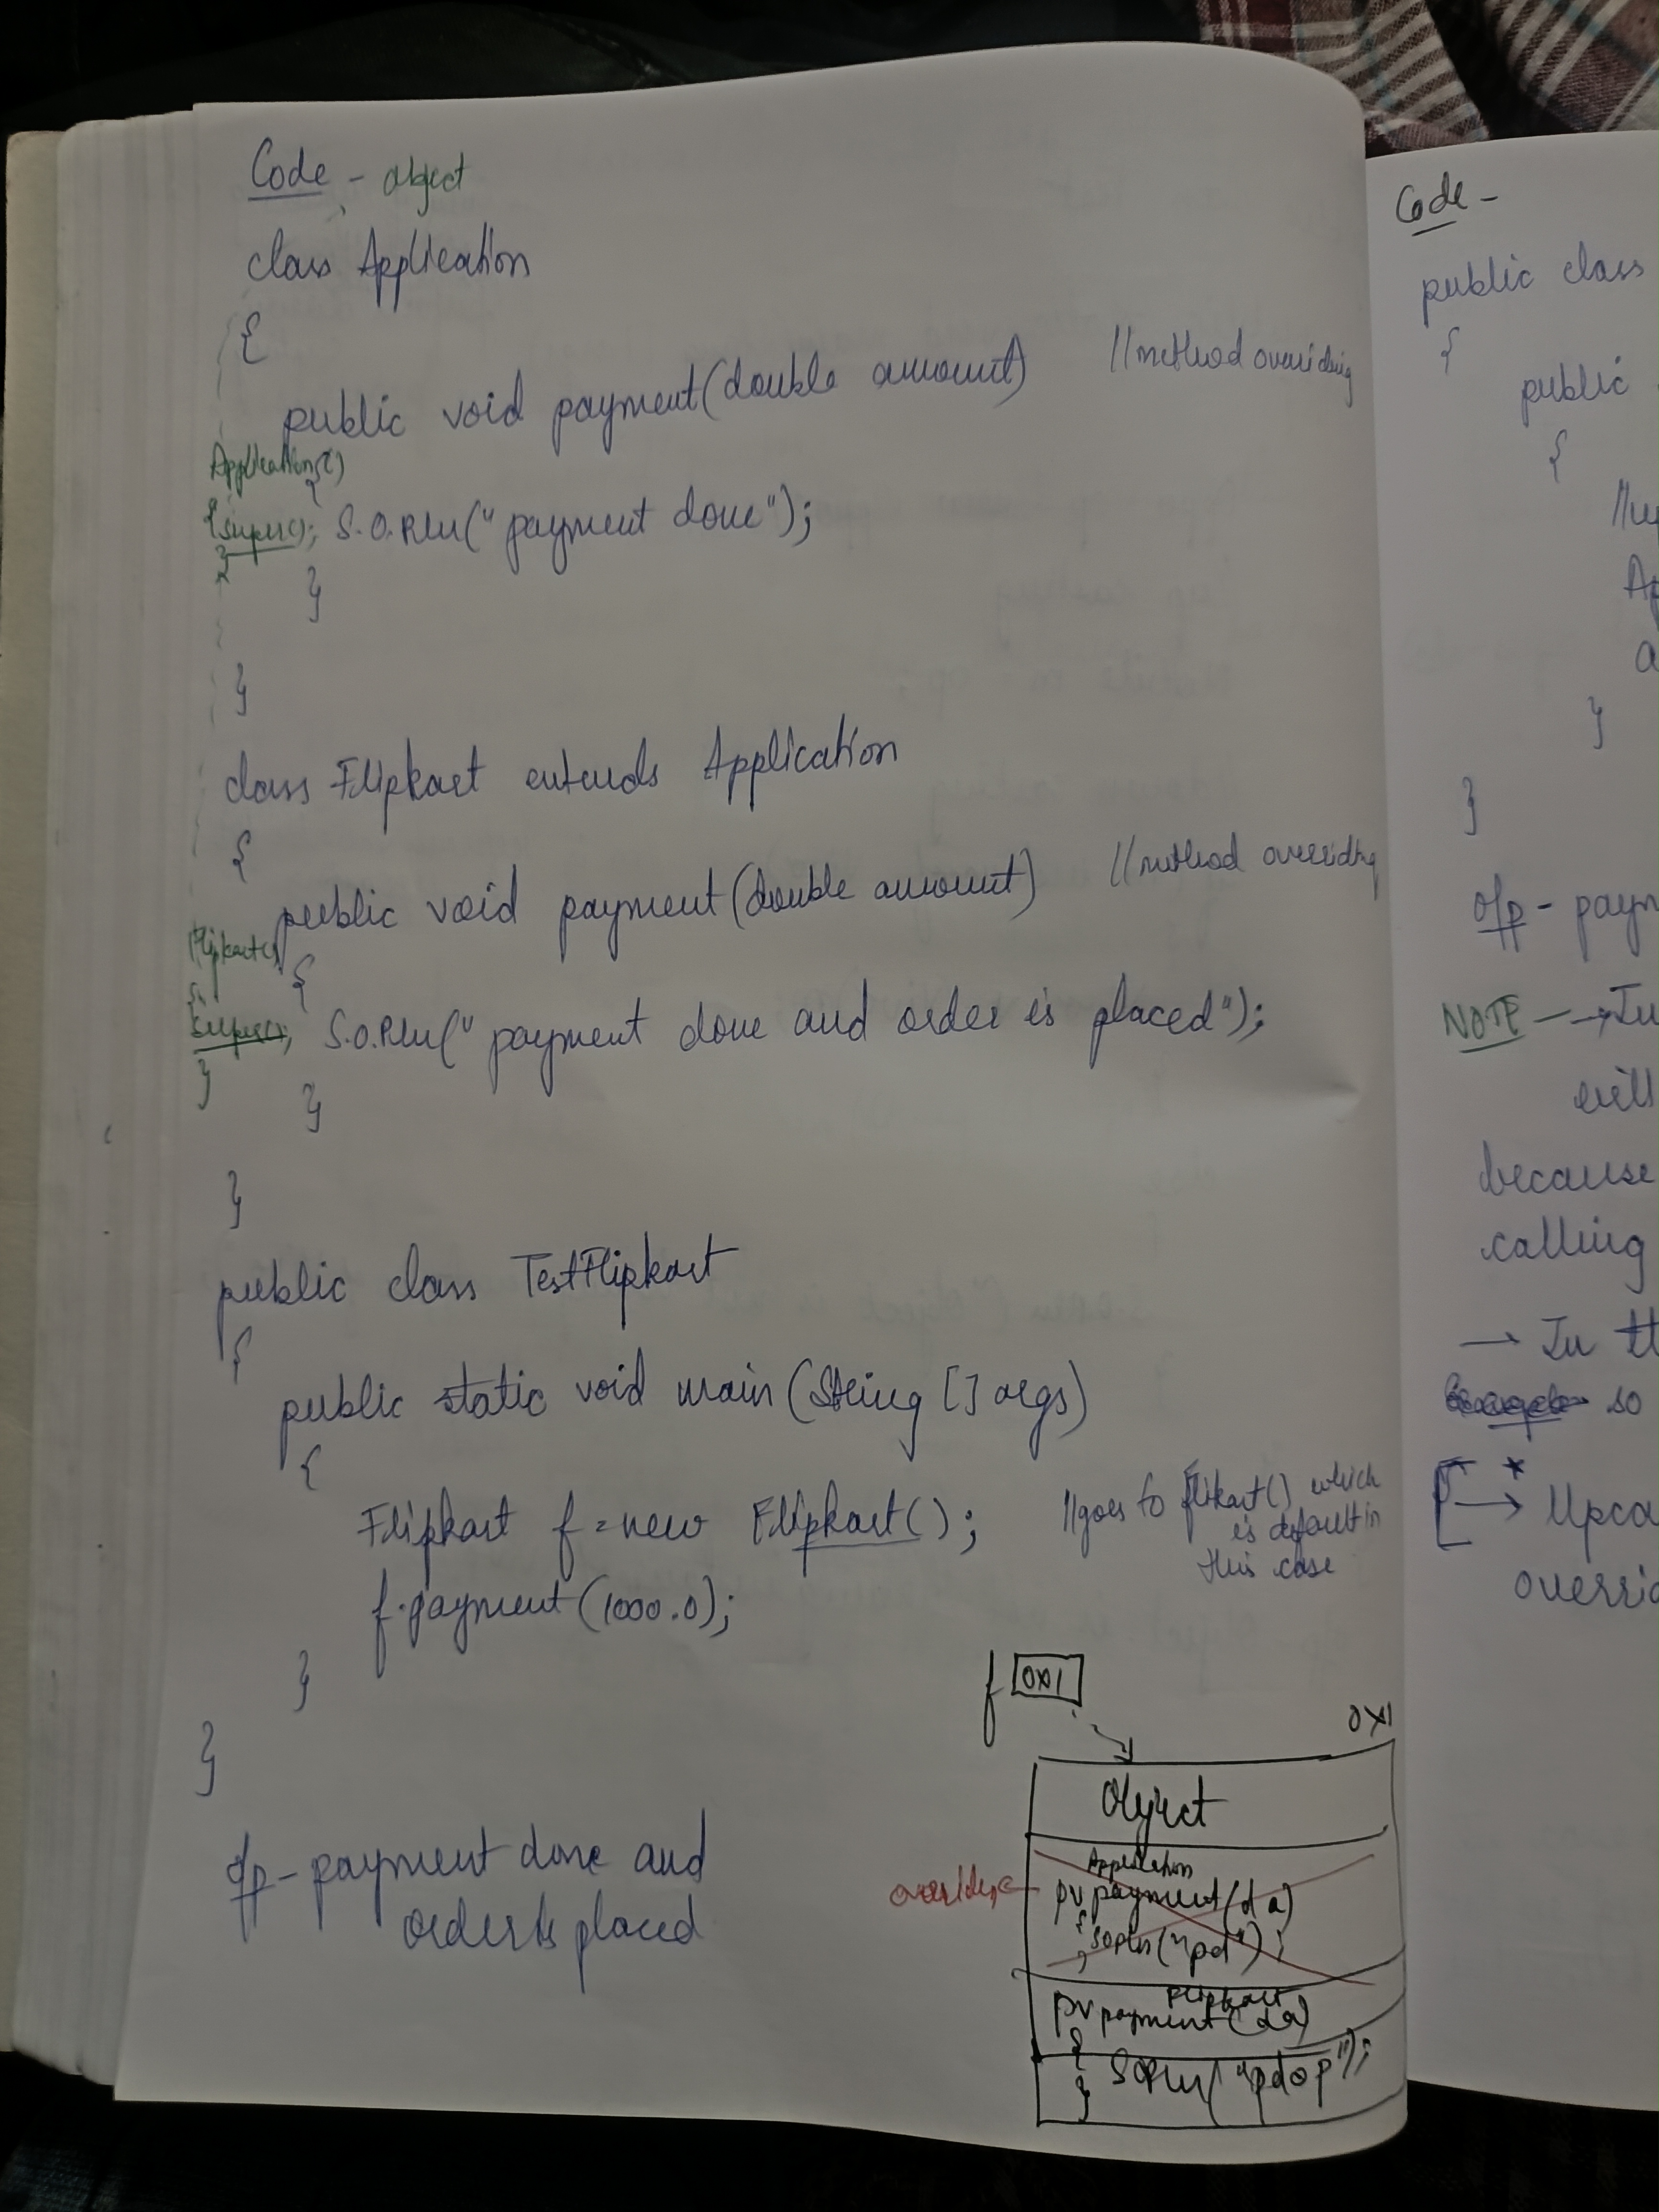 Code - object
class Application
{
public void payment(double amount) //method overiding
Application()
{
{super(); S.O.Pln("payment done");
}
}
}
class Flipkart extends Application
{
public void payment(double amount) //method overriding
Flipkart()
{
{
super(); S.O.Pln("payment done and order is placed");
}
}
}
public class TestFlipkart
{
public static void main(String [] args)
{
Flipkart f = new Flipkart(); //goes to flikart() which
is default in
this case
f.payment(1000.0);
}
}
o/p - payment done and
order is placed
f 0X1
0X1
Object
Application
pv payment(d a)
{ sopln("pd");
}
Flipkart
pv payment(d a)
{
SOPln("pdop");
}
Code -
public class
{
public
{
}
}
o/p - paym
NOTE → In
will
because
calling
→ In
so
* → Upca
overri